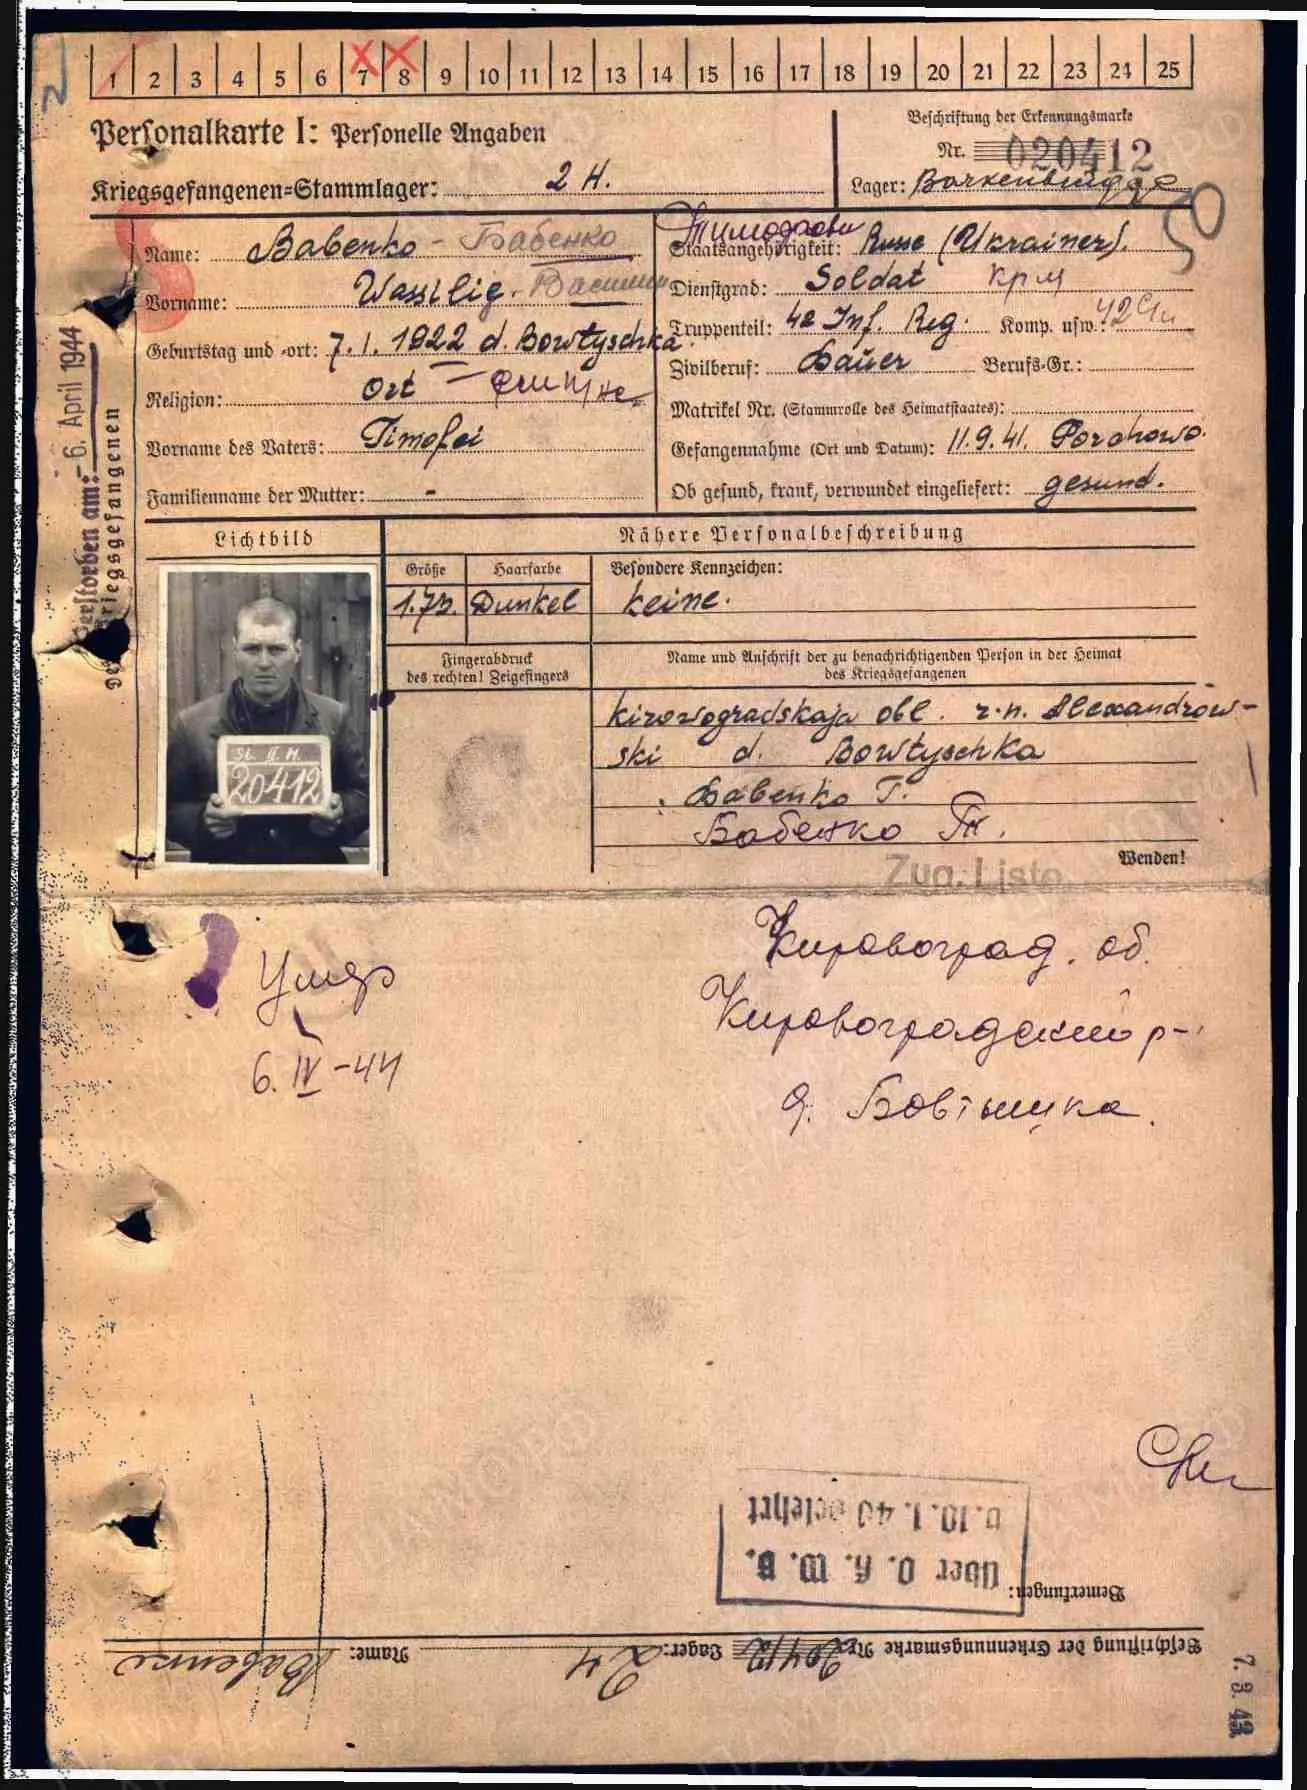 2
1 2 3 4 5 6 7 8 9 10 11 12 13 14 15 16 17 18 19 20 21 22 23 24 25
Personalkarte I: Personelle Angaben
Kriegsgefangenen=Stammlager: 2 H.
Beschriftung der Erkennungsmarke
Nr. 020412
Lager: Barkenbrügge
50
Name: Babenko - Бабенко
Vorname: Wassilig. Василий
Geburtstag und -ort: 7.1.1922 d. Bowtyschka
Religion: Ort
Vorname des Vaters: Timofei
Familienname der Mutter: -
Staatsangehörigkeit: Russe (Ukrainer).
Dienstgrad: Soldat кр м
Truppenteil: 42 Inf. Reg. Komp. usw.: 42
Zivilberuf: Bauer Berufs-Gr.:
Matrikel Nr. (Stammrolle des Heimatstaates):
Gefangennahme (Ort und Datum): 11.9.41. Porchowo.
Ob gesund, krank, verwundet eingeliefert: gesund.
Verstorben am: -6. April 1944
Kriegsgefangenen
Lichtbild
St. II H.
20412
Nähere Personalbeschreibung
Größe
1.73.
Haarfarbe
Dunkel
Besondere Kennzeichen:
keine.
Fingerabdruck
des rechten! Zeigefingers
Name und Anschrift der zu benachrichtigenden Person in der Heimat
des Kriegsgefangenen
Kirowogradskaja obl. r.n. Alexandrow-
ski d. Bowtyschka
Babenko T.
Бабенко Т.
Wenden!
Zug. Liste
Умер
6. IV -44
Кировоград. об.
Кировоградский р-
д. Бовтышка.
Bemerkungen:
Über O. K. W. B.
v. 10. 1. 40 belehrt
Beschriftung der Erkennungsmarke Nr. 20412 Lager: 2 H Name: Babenko
7. 3. 43